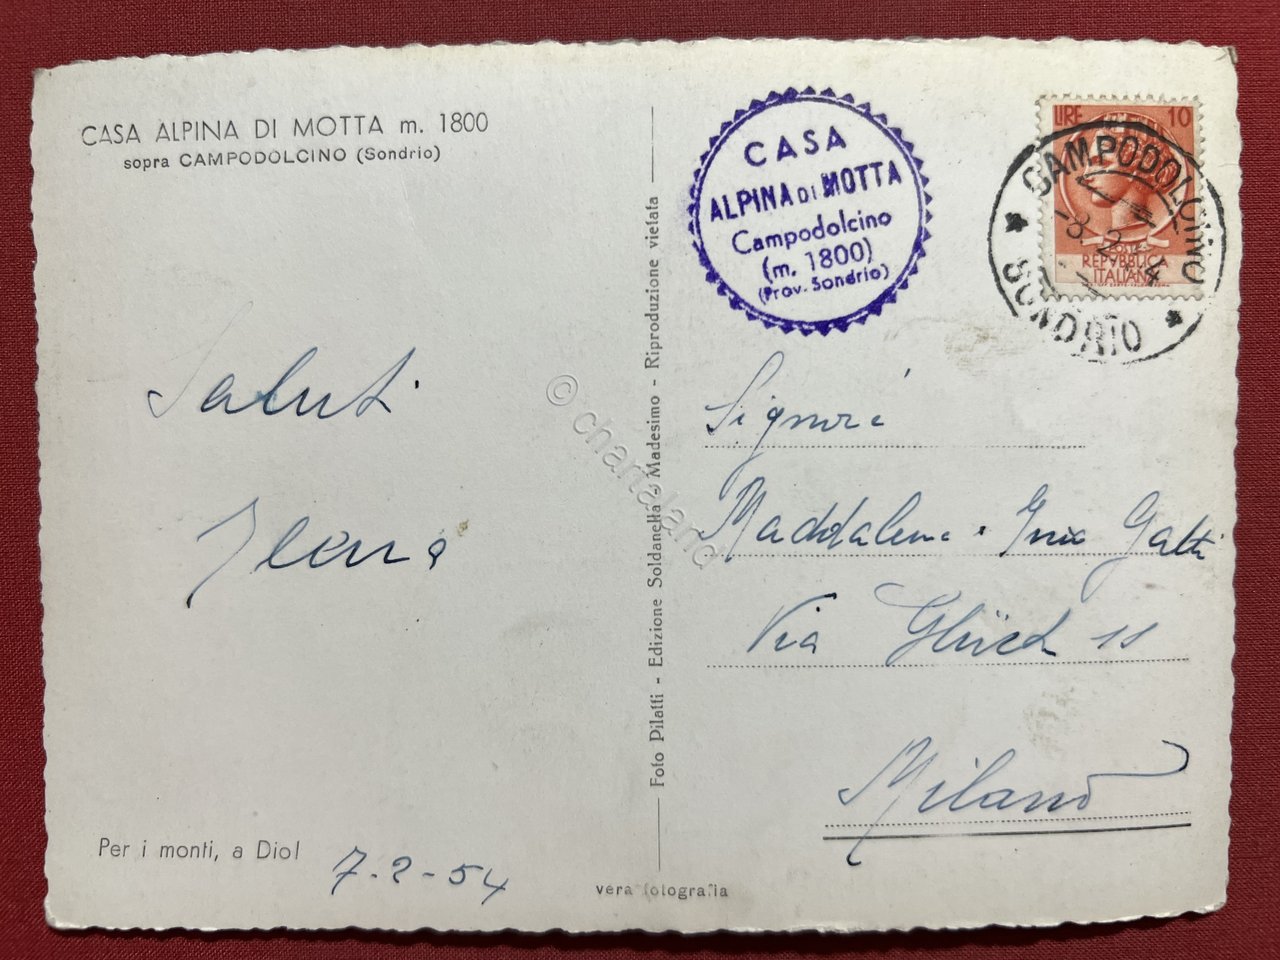 CASA ALPINA DI MOTTA m. 1800
sopra CAMPODOLCINO (Sondrio)
Saluti
Per i monti, a Dio!
7-2-54
Foto Pilatti - Edizione Soldanella - Madesimo - Riproduzione vietata
vera fotografia
© chartaland
CASA
ALPINA DI MOTTA
Campodolcino
(m. 1800)
(Prov. Sondrio)
LIRE 10
POSTE
REPVBBLICA
ITALIANA
CAMPODOLCINO
-8.2.
SONDRIO
Signori
Maddalena e Gatti
Via Glück 11
Milano